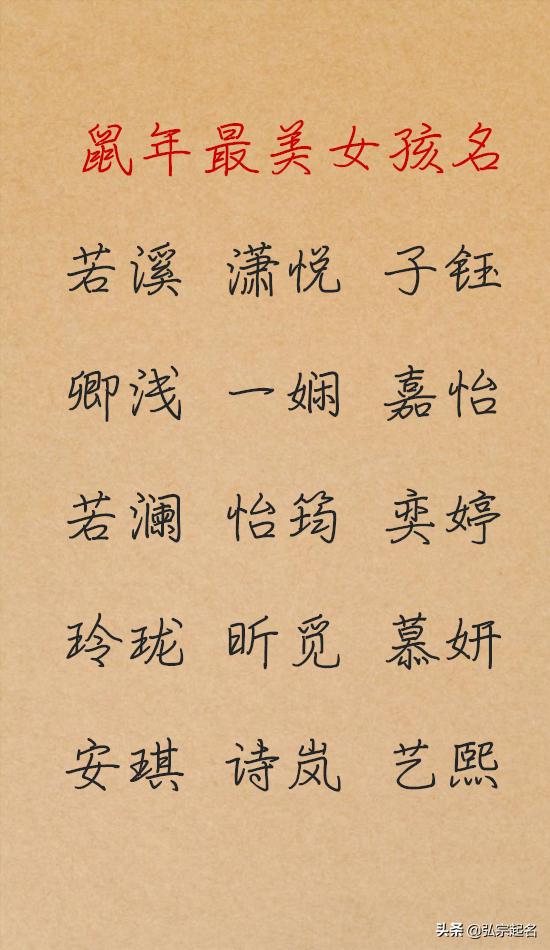 鼠年最美女孩名
若溪 潇悦 子钰
卿浅 一娴 嘉怡
若澜 怡筠 奕婷
玲珑 昕觅 慕妍
安琪 诗岚 艺熙
头条 @弘宗起名